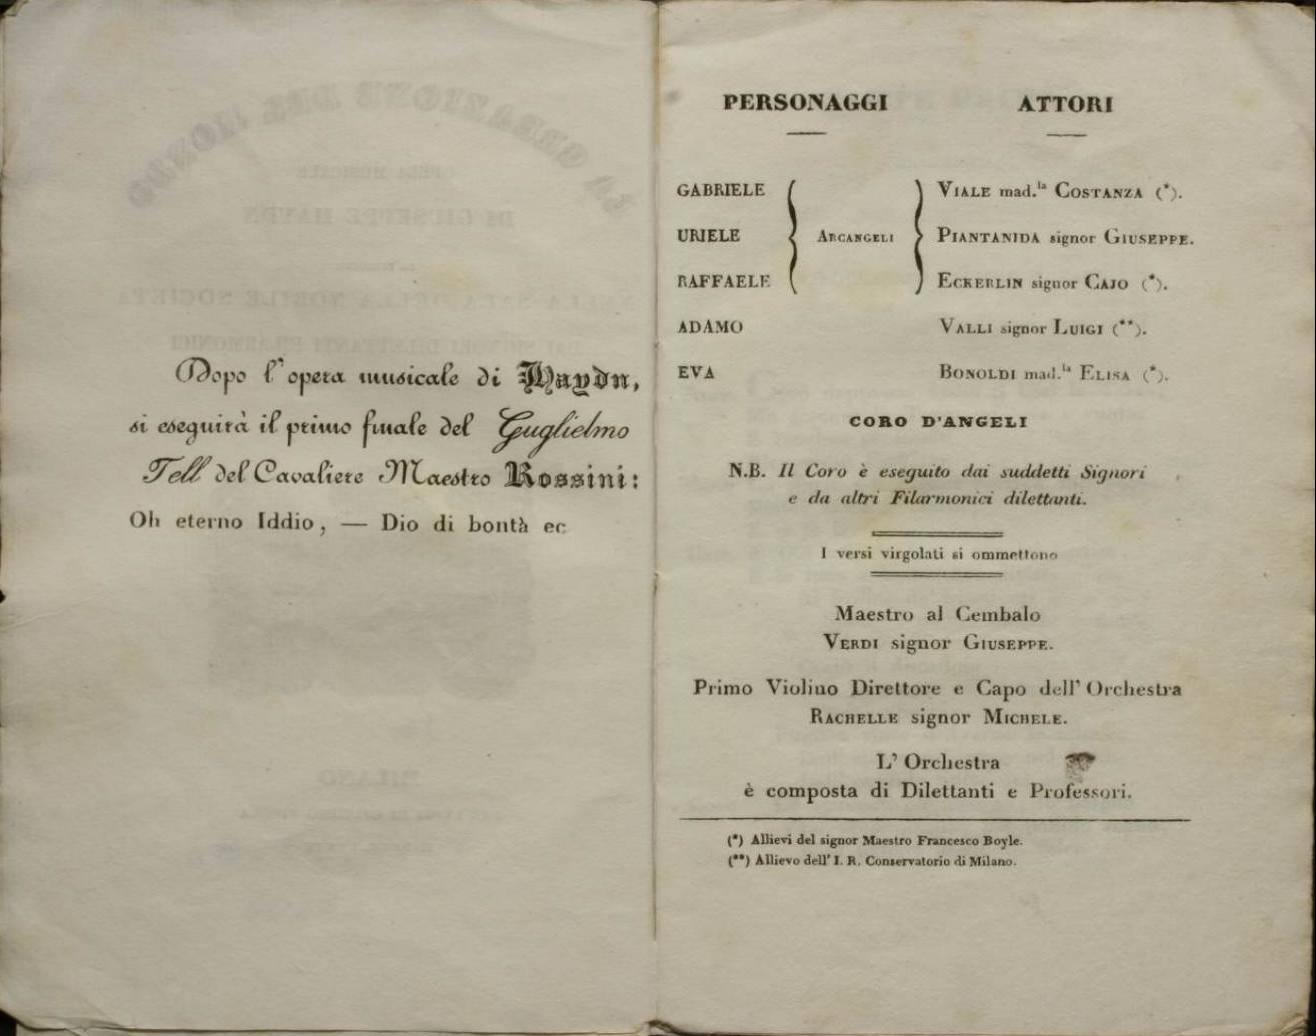 Dopo l'opera musicale di Haydn,
si eseguirà il primo finale del Guglielmo
Tell del Cavaliere Maestro Rossini:
Oh eterno Iddio, — Dio di bontà ec
PERSONAGGI ATTORI
GABRIELE VIALE mad.la COSTANZA (*).
URIELE ARCANGELI PIANTANIDA signor GIUSEPPE.
RAFFAELE ECKERLIN signor CAJO (*).
ADAMO VALLI signor LUIGI (**).
EVA BONOLDI mad.la ELISA (*).
CORO D'ANGELI
N.B. Il Coro è eseguito dai suddetti Signori
e da altri Filarmonici dilettanti.
I versi virgolati si ommettono
Maestro al Cembalo
VERDI signor GIUSEPPE.
Primo Violino Direttore e Capo dell' Orchestra
RACHELLE signor MICHELE.
L' Orchestra
è composta di Dilettanti e Professori.
(*) Allievi del signor Maestro Francesco Boyle.
(**) Allievo dell' I. R. Conservatorio di Milano.